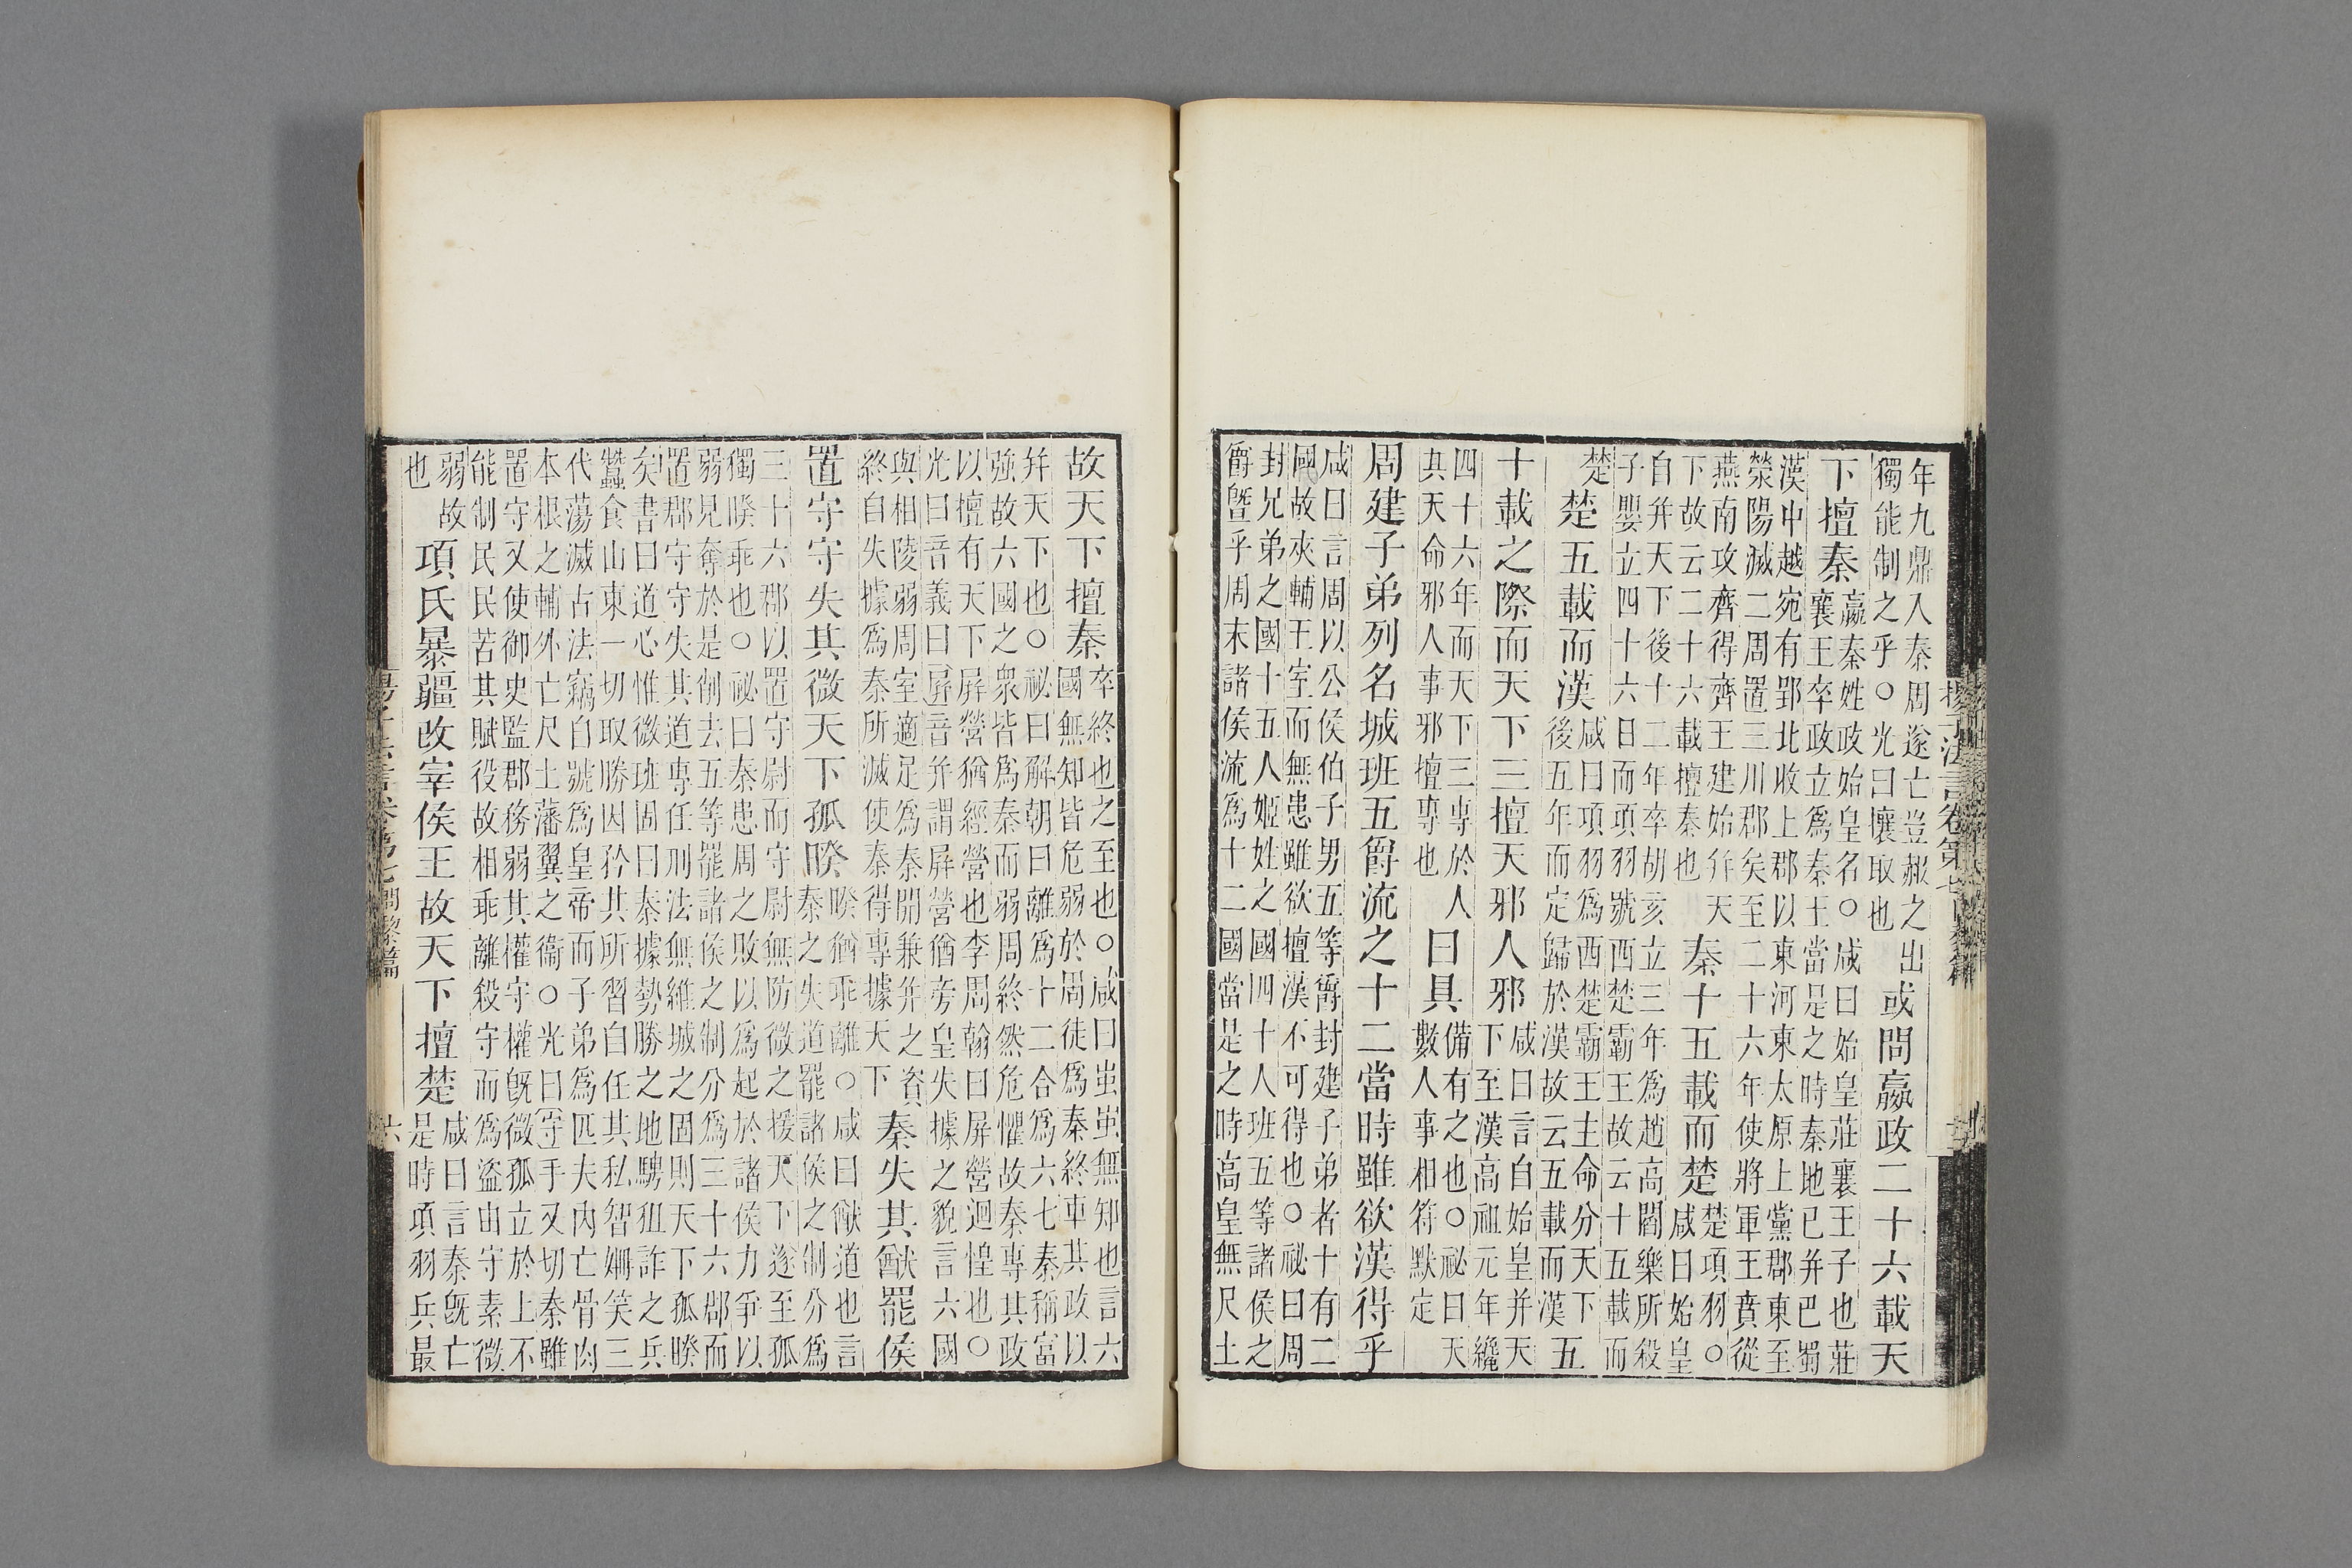 年九鼎入秦周遂亡豈赧之出
獨能制之乎○光曰攘取也
或問嬴政二十六載天
下擅秦
嬴秦姓政始皇名○咸曰始皇莊襄王子也莊
襄王卒政立爲秦王當是之時秦地已并巴蜀
漢中越宛有郢北收上郡以東河東太原上黨郡東至
滎陽滅二周置三川郡矣至二十六年使將軍王賁從
燕南攻齊得齊王建始并天
下故云二十六載擅秦也
秦十五載而楚
楚項羽○
咸曰始皇
自并天下後十二年卒胡亥立三年爲趙高閻樂所殺
子嬰立四十六日而項羽號西楚霸王故云十五載而
楚
楚五載而漢
咸曰項羽爲西楚霸王主命分天下
後五年而定歸於漢故云五載而漢
五
十載之際而天下三擅天邪人邪
咸曰言自始皇并天
下至漢高祖元年纔
四十六年而天下三專於人
其天命邪人事邪擅專也
曰具
備有之也○祕曰天
數人事相符默定
周建子弟列名城班五爵流之十二當時雖欲漢得乎
咸曰言周以公侯伯子男五等爵封建子弟者十有二
國故夾輔王室而無患雖欲擅漢不可得也○祕曰周
封兄弟之國十五人姬姓之國四十人班五等諸侯之
爵曁乎周末諸侯流爲十二國當是之時高皇無尺土
故天下擅秦
卒終也之至也○咸曰蚩蚩無知也言六
國無知皆危弱於周徒爲秦終車其政以
并天下也○祕曰解朝曰離爲十二合爲六七秦稱富
強故六國之衆皆爲秦而弱周終然危懼故秦專其政
以擅有天下屏營猶經營也李周翰曰屏營迴惶也○
光曰音義曰屏音并謂屏營猶旁皇失據之貌言六國
與相陵弱周室適足爲秦開兼并之資
終自失據爲秦所滅使秦得專據天下
秦失其猷罷侯
置守守失其微天下孤睽
睽猶乖離○咸曰猷道也言
秦之失道罷諸侯之制分爲
三十六郡以置守尉而守尉無防微之援天下遂至孤
獨睽乖也○祕曰秦患周之敗以爲起於諸侯力爭以
弱見奪於是削去五等罷諸侯之制分爲三十六郡而
置郡守守失其道專任刑法無維城之固則天下孤睽
矣書曰道心惟微班固曰秦據勢勝之地騁狙詐之兵
蠶食山東一切取勝因矜其所習自任其私智姍笑三
代蕩滅古法竊自號爲皇帝而子弟爲匹夫内亡骨肉
本根之輔外亡尺土藩翼之衞○光曰守手又切秦雖
置守又使御史監郡務弱其權守權旣微孤立於上不
能制民民苦其賦役故相乖離殺守而爲盜由守素微
弱故
也
項氏暴彊改宰侯王故天下擅楚
咸曰言秦旣亡
是時項羽兵最